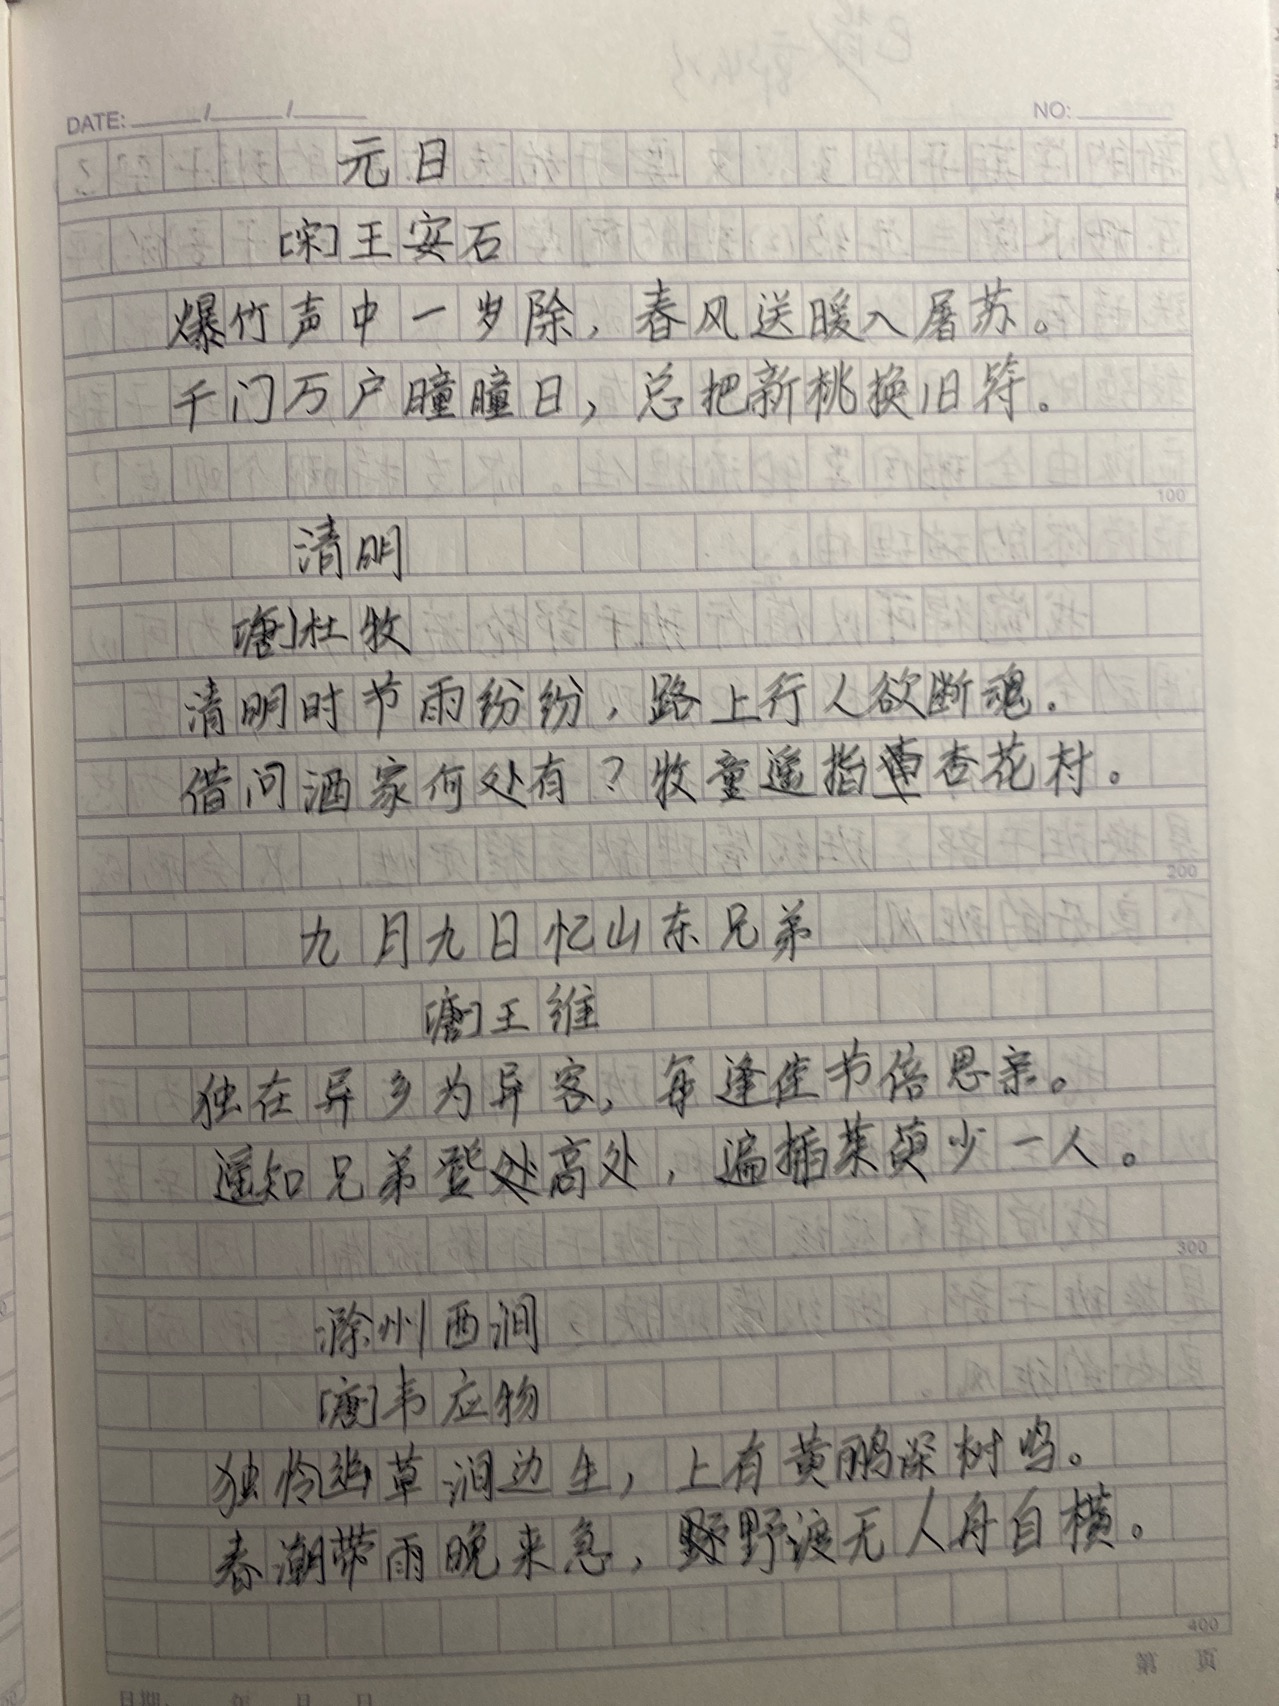 DATE: / /
NO:
元日
[宋]王安石
爆竹声中一岁除，春风送暖入屠苏。
千门万户瞳瞳日，总把新桃换旧符。
100
清明
[唐]杜牧
清明时节雨纷纷，路上行人欲断魂．
借问酒家何处有？牧童遥指杏花村。
200
九月九日忆山东兄弟
[唐]王维
独在异乡为异客，每逢佳节倍思亲。
遥知兄弟登高处，遍插茱萸少一人。
300
滁州西涧
[唐]韦应物
独怜幽草涧边生，上有黄鹂深树鸣。
春潮带雨晚来急，野渡无人舟自横。
400
第 页
日期： 年 月 日